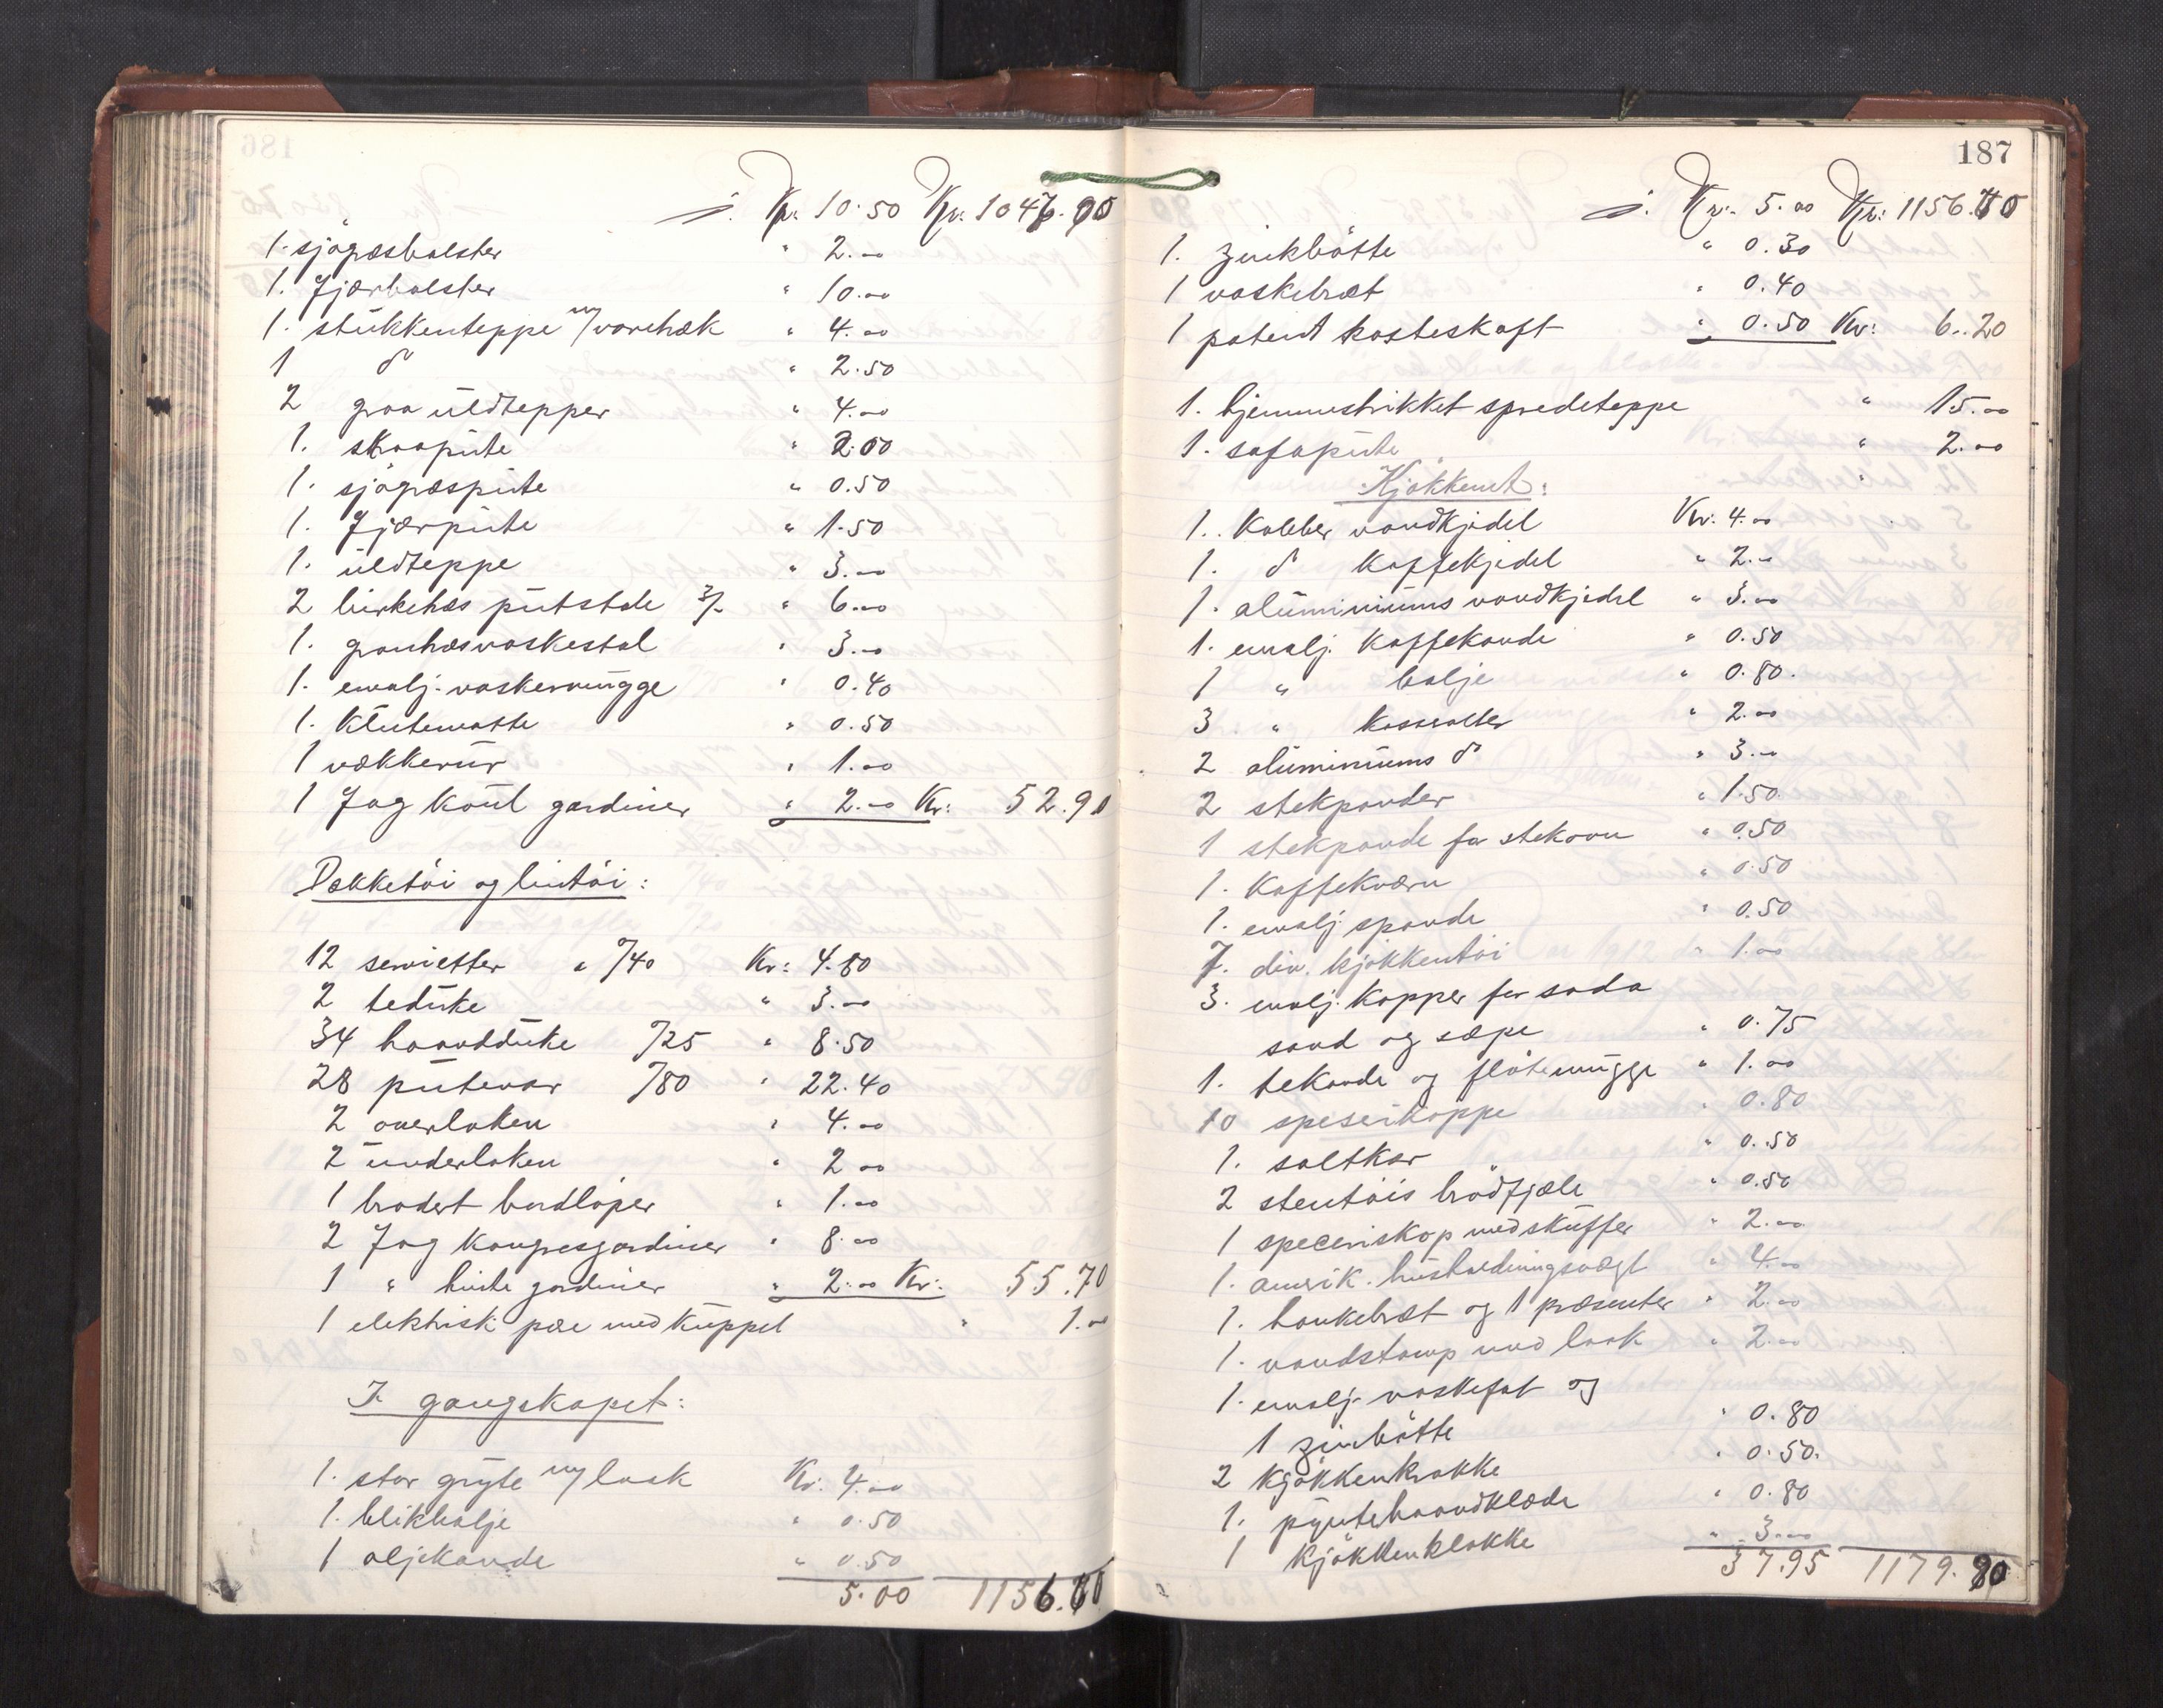 Kr. 10.50 Kr: 1047.00
1. sjøgræsbolster " 2.00
1. Fjærbolster " 10.00
1. stukkenteppe m/ varetræk " 4.00
1 do " 2.50
2 graa uldtepper " 4.00
1. skraapute " 2.00
1. sjøgræspute " 0.50
1. Fjærpute " 1.50
1. uldteppe " 3.00
2 birketræs pütstole 3/- " 6.00
1. grantræsvaskestol " 3.00
1. emalj. vaskemugge " 0.40
1. Klutematte " 0.50
1 vækkerur " 1.00
1 Fag gardiner " 2.00 Kr: 52.90
Dækketøi og lintøi:
12 servietter a /40 Kr: 4.80
2 teduke " 3.00
34 haandduke /25 " 8.50
28 putevar /80 " 22.40
2 overlaken " 4.00
2 underlaken " 2.00
1 brodert bordløper " 1.00
2 Fag kongresgardiner " 8.00
1 " hvite gardiner " 2.00 Kr: 55.70
1 elektrisk pære med kuppel " 1.00
I gangskapet:
1. stor gryte m/ laak Kr. 4.00
1. blikbalje " 0.50
1 oljekande " 0.50
5.00 1156.60
187
Kr. 5.00 Kr: 1156.60
1. zinkbøtte " 0.30
1 vaskebræt " 0.40
1 patent kosteskaft " 0.50 Kr: 6.20
1. hjemmestrikket spredeteppe " 15.00
1. sofapute " 2.00
Kjøkkenet:
1. Kobber vandkjedel Kr. 4.00
1. do Kaffekjedel " 2.00
1. aluminiums vandkjedel " 3.00
1. emalj. Kaffekande " 0.50
1 " balje " 0.80.
3 " kasseroller " 2.00
2 aluminiums do " 3.00
2 stekpander " 1.50
1 stekpande for stekovn " 0.50
1. Kaffekværn " 0.50
1. emalj. spande " 0.50
7. div. kjøkkentøi " 1.00
3. emalj. Kopper for soda
sand og sæpe " 0.75
1. tekande og fløtemugge " 1.00
10 speserikoppe " 0.80
1. saltkar " 0.50
2 stentøis brødfjæle " 0.50
1 speceriskap med skuffer " 2.00
1. amerik. husholdningsvægt " 4.00
1. bankebræt og 1 præsenter " 2.00
1. vandstamp med laak " 2.00
1. emalj. vaskefat og
1 zinbøtte " 0.80
2 kjøkkenkrakke " 0.50.
1. pyntehaandklæde " 0.80
1 Kjøkkenklokke " 3.00
37.95 1179.80